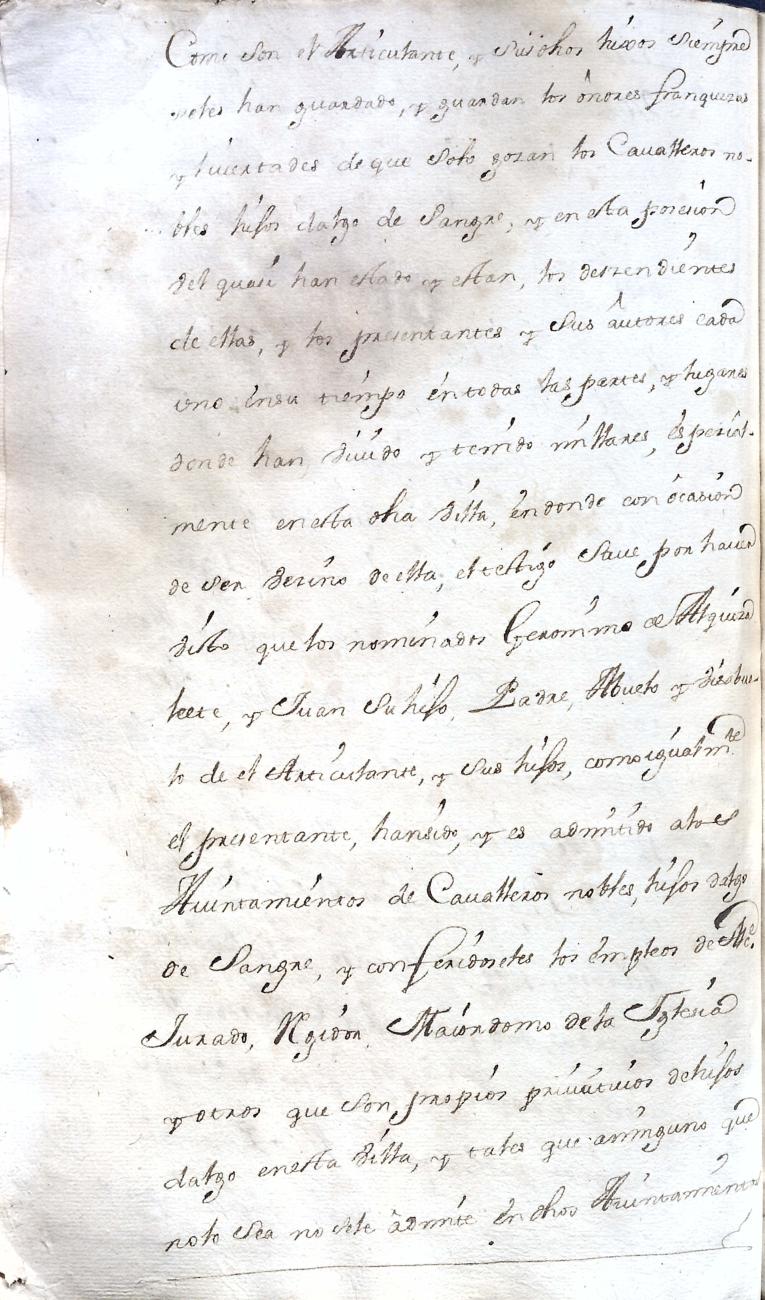 Como son el Articulante, y sus dhos hixos siempre
seles han guardado, y guardan los onores franquezas
y livertades de que solo gozan los Cavalleros no-
bles hijos dalgo de Sangre, y en esta posesion
del quasi han estado y estan, los deszendientes
de ellas, y los presentantes y sus autores cada
uno ensu tiempo entodas las partes, y lugares
donde han vivido y tenido millares, espezial-
mente enesta dha Villa, endonde con ocasion
de ser Vezino de ella, el testigo save por haver
visto que los nominados Geronimo de Alquiza
leete, y Juan su hijo, Padre, Abuelo y visabue-
lo de el Articulante, y sus hijos, como igualmte
el presentante, hansido, y es admitido alos
Aiuntamientos de Cavalleros nobles, hijos dalgo
de Sangre, y conferidoseles los empleos de Alce.
Jurado, Rgidor, Maiordomo dela Iglesia
y otros que son propios privativos dehijos
dalgo enesta Villa, y tales que aninguno que
nolo sea no sele admite en dhos Aiuntamientos